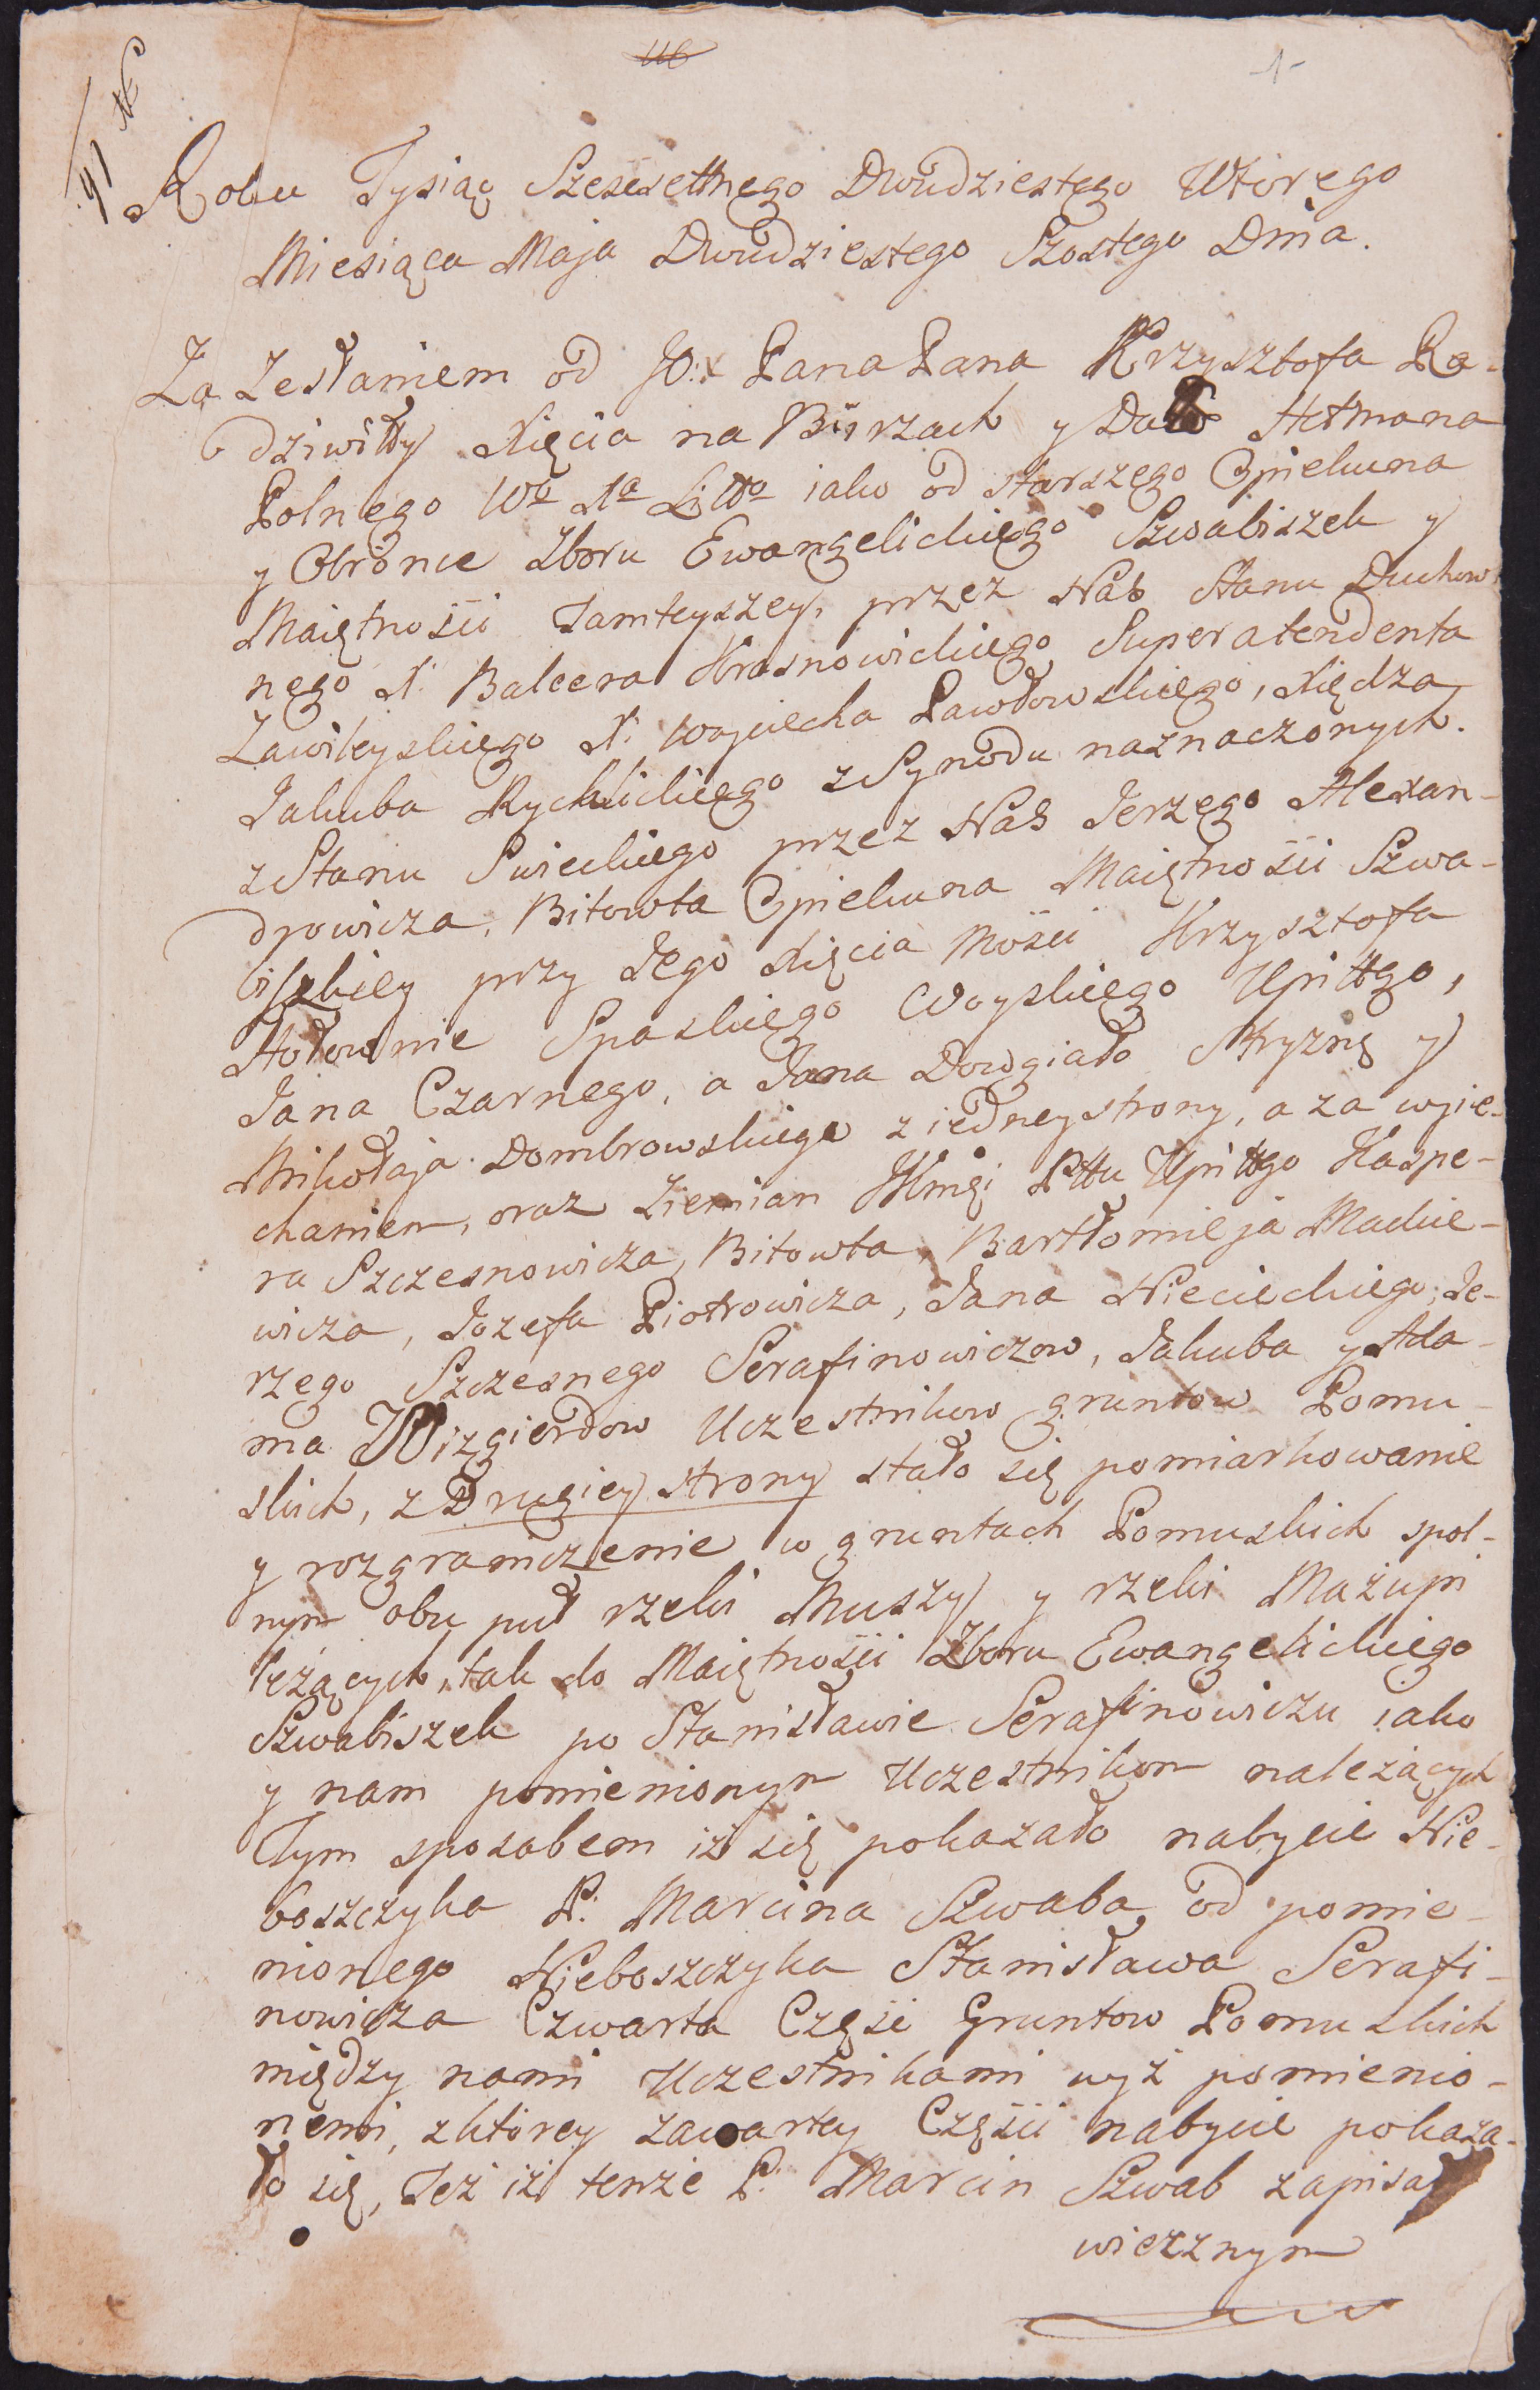 -1-
Roku Tysiąc Szescsetnego Dwudziestego Wtorego
Miesiąca Maja Dwudziestego Szostego Dnia.
Za Zesłaniem od JO: X Pana Pana Krzysztofa Ra-
dziwiłły Xięcia na Birzach y Hetmana
Polnego Wo Xa Litto iako od starszego Opiekuna
y Obronce Zboru Ewangelickiego Szwabiszek y
Maiętnosci Tamteyszey, przez Nas Stanu Duchow
nego X. Balcera Krasnowickiego Superatendenta
Zawileyskiego X. Woyciecha Pawłowskiego, Xiędza
Jakuba Rychlickiego z Synodu naznaczonych.
z Stanu Swieckiego przez Nas Jerzego Alexan-
drowicza, Bitowta Opiekuna Maiętnosci Szwa-
biszkiey przy Jego Xięcia Mosci Krzysztofa
Hołownie Spaskiego Woyskiego Upittgo,
Jana Czarnego, a Jana Dowgiało Skryznę y
Mikołaja Dombrowskiego z iedney strony, a za wyie-
chaniem, oraz Ziemian JKmci Pttu Upittgo Kaspe-
ra Szczesnowicza, Bitowta, Bartłomieja Mackie-
wicza, Jozefa Piotrowicza, Jana Nieciechiego, Je-
rzego Szczesnego Serafinowiczow, Jakuba y Ada-
ma Wizgierdow Uczestnikow gruntow Pomu-
skich, z Drugiey strony stało się pomiarkowanie
y rozgraniczenie w gruntach Pomuskich spol-
nym obu puł rzeki Muszy y rzeki Mażupi
leżących, tak do Maiętnosci Zboru Ewangelickiego
Szwabiszek po Stanisławie Serafinowiczu iako
y nam pomienionym Uczestnikom należących
Tym sposobem iż się pokazało nabycie Nie-
boszczyka P. Marcina Szwaba od pomie-
nionego Nieboszczyka Stanisława Serafi-
nowicza Czwarta Częsc Gruntow Pomuskich
między nami Uczestnikami wyż pomienio-
nemi, z ktorey zawartey Części nabycie pokaza-
ło się, Też iż tenże P. Marcin Szwab zapisał
wiecznym